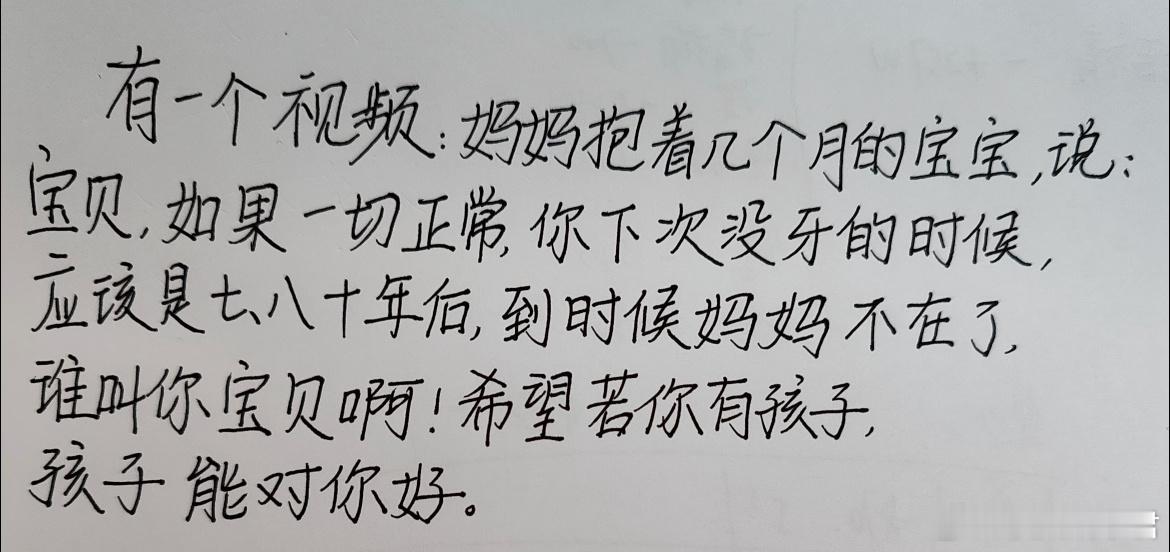 有一个视频：妈妈抱着几个月的宝宝，说：
宝贝，如果一切正常，你下次没牙的时候，
应该是七、八十年后，到时候妈妈不在了，
谁叫你宝贝啊！希望若你有孩子，
孩子能对你好。